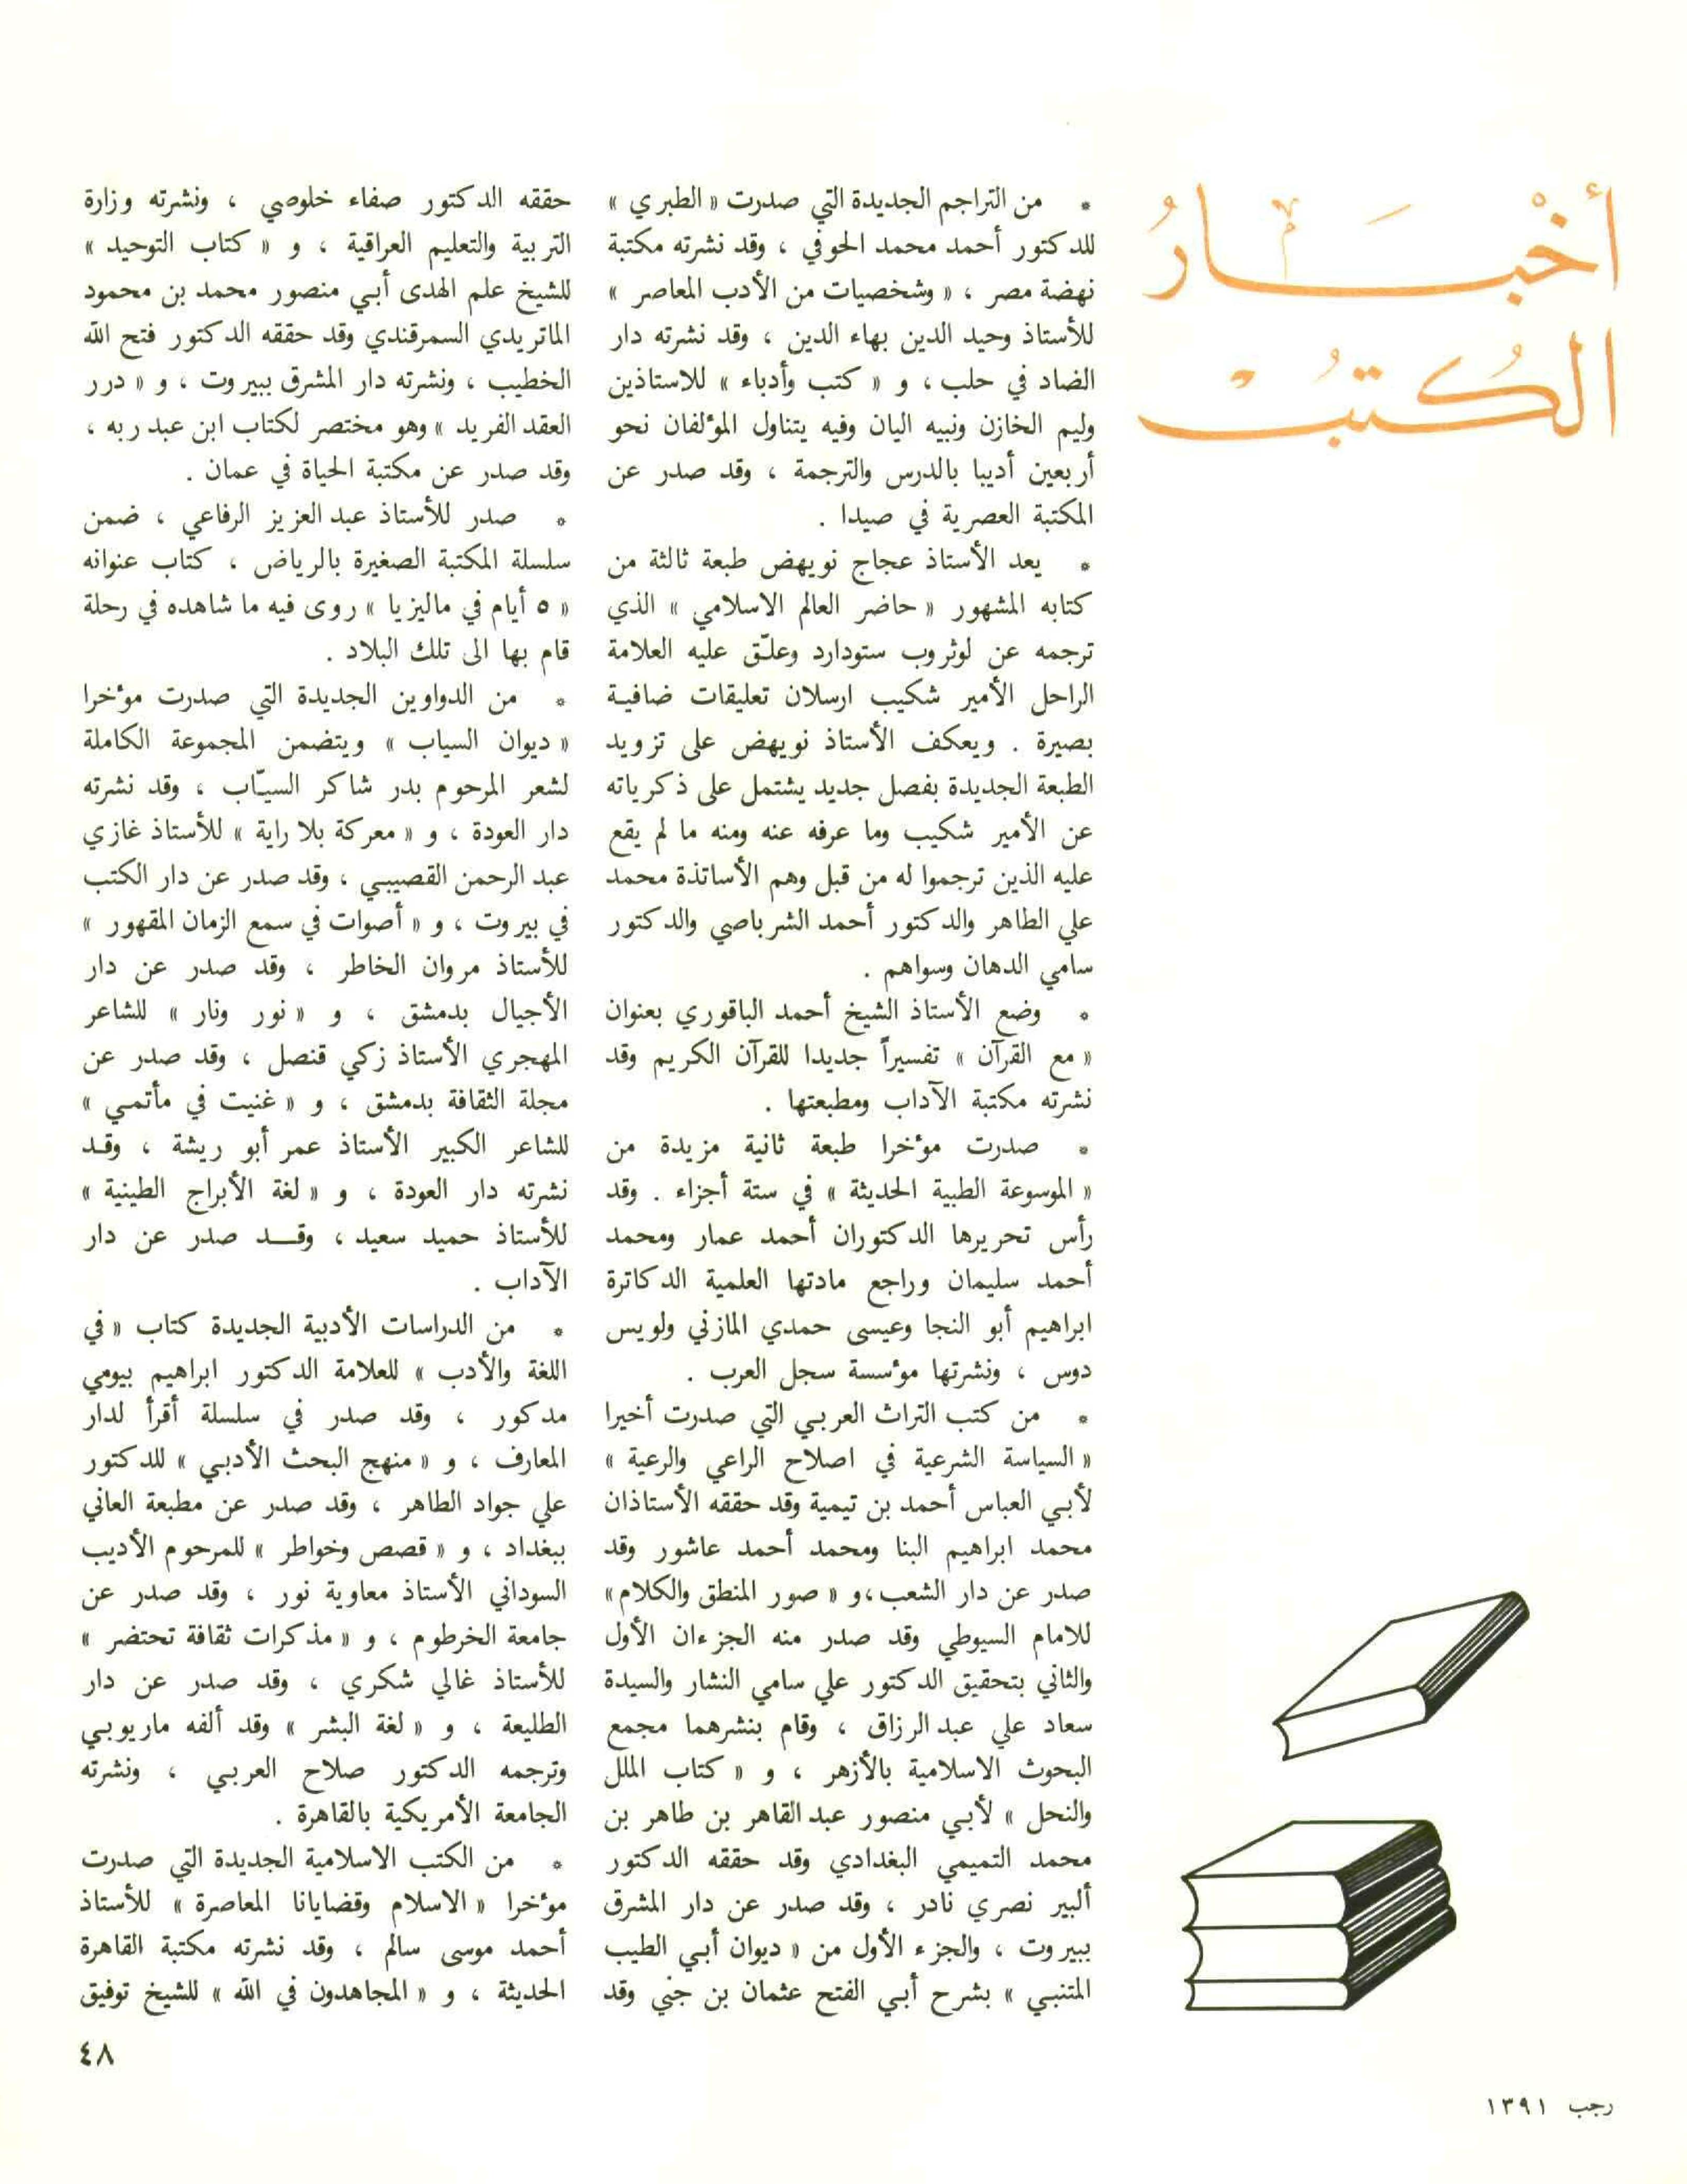 أخبار
الكتب
* من التراجم الجديدة التي صدرت « الطبري »
للدكتور أحمد محمد الحوفي ، وقد نشرته مكتبة
نهضة مصر ، « وشخصيات من الأدب المعاصر »
للأستاذ وحيد الدين بهاء الدين ، وقد نشرته دار
الضاد في حلب ، و « كتب وأدباء » للاستاذين
وليم الخازن ونبيه اليان وفيه يتناول المؤلفان نحو
أربعين أديبا بالدرس والترجمة ، وقد صدر عن
المكتبة العصرية في صيدا .
* يعد الأستاذ عجاج نويهض طبعة ثالثة من
كتابه المشهور « حاضر العالم الاسلامي » الذي
ترجمه عن لوثروب ستودارد وعلّق عليه العلامة
الراحل الأمير شكيب ارسلان تعليقات ضافية
بصيرة . ويعكف الأستاذ نويهض على تزويد
الطبعة الجديدة بفصل جديد يشتمل على ذكرياته
عن الأمير شكيب وما عرفه عنه ومنه ما لم يقع
عليه الذين ترجموا له من قبل وهم الأساتذة محمد
علي الطاهر والدكتور أحمد الشرباصي والدكتور
سامي الدهان وسواهم .
* وضع الأستاذ الشيخ أحمد الباقوري بعنوان
« مع القرآن » تفسيراً جديدا للقرآن الكريم وقد
نشرته مكتبة الآداب ومطبعتها .
* صدرت مؤخرا طبعة ثانية مزيدة من
« الموسوعة الطبية الحديثة » في ستة أجزاء . وقد
رأس تحريرها الدكتوران أحمد عمار ومحمد
أحمد سليمان وراجع مادتها العلمية الدكاترة
ابراهيم أبو النجا وعيسى حمدي المازني ولويس
دوس ، ونشرتها مؤسسة سجل العرب .
* من كتب التراث العربي التي صدرت أخيرا
« السياسة الشرعية في اصلاح الراعي والرعية »
لأبي العباس أحمد بن تيمية وقد حققه الأستاذان
محمد ابراهيم البنا ومحمد أحمد عاشور وقد
صدر عن دار الشعب ،و « صور المنطق والكلام»
للامام السيوطي وقد صدر منه الجزءان الأول
والثاني بتحقيق الدكتور علي سامي النشار والسيدة
سعاد علي عبد الرزاق ، وقام بنشرهما مجمع
البحوث الاسلامية بالأزهر ، و « كتاب الملل
والنحل » لأبي منصور عبد القاهر بن طاهر بن
محمد التميمي البغدادي وقد حققه الدكتور
ألبير نصري نادر ، وقد صدر عن دار المشرق
ببيروت ، والجزء الأول من « ديوان أبي الطيب
المتنبي » بشرح أبي الفتح عثمان بن جني وقد
حققه الدكتور صفاء خلوصي ، ونشرته وزارة
التربية والتعليم العراقية ، و « كتاب التوحيد »
للشيخ علم الهدى أبي منصور محمد بن محمود
الماتريدي السمرقندي وقد حققه الدكتور فتح الله
الخطيب ، ونشرته دار المشرق ببيروت ، و « درر
العقد الفريد » وهو مختصر لكتاب ابن عبد ربه ،
وقد صدر عن مكتبة الحياة في عمان .
* صدر للأستاذ عبد العزيز الرفاعي ، ضمن
سلسلة المكتبة الصغيرة بالرياض ، كتاب عنوانه
« ٥ أيام في ماليزيا » روى فيه ما شاهده في رحلة
قام بها الى تلك البلاد .
* من الدواوين الجديدة التي صدرت مؤخرا
« ديوان السياب » ويتضمن المجموعة الكاملة
لشعر المرحوم بدر شاكر السيّاب ، وقد نشرته
دار العودة ، و « معركة بلا راية » للأستاذ غازي
عبد الرحمن القصيبي ، وقد صدر عن دار الكتب
في بيروت ، و « أصوات في سمع الزمان المقهور »
للأستاذ مروان الخاطر ، وقد صدر عن دار
الأجيال بدمشق ، و « نور ونار » للشاعر
المهجري الأستاذ زكي قنصل ، وقد صدر عن
مجلة الثقافة بدمشق ، و « غنيت في مأتمي »
للشاعر الكبير الأستاذ عمر أبو ريشة ، وقد
نشرته دار العودة ، و « لغة الأبراج الطينية »
للأستاذ حميد سعيد ، وقد صدر عن دار
الآداب .
* من الدراسات الأدبية الجديدة كتاب « في
اللغة والأدب » للعلامة الدكتور ابراهيم بيومي
مدكور ، وقد صدر في سلسلة أقرأ لدار
المعارف ، و « منهج البحث الأدبي » للدكتور
علي جواد الطاهر ، وقد صدر عن مطبعة العاني
ببغداد ، و « قصص وخواطر » للمرحوم الأديب
السوداني الأستاذ معاوية نور ، وقد صدر عن
جامعة الخرطوم ، و « مذكرات ثقافة تحتضر »
للأستاذ غالي شكري ، وقد صدر عن دار
الطليعة ، و « لغة البشر » وقد ألفه ماريوبي
وترجمه الدكتور صلاح العربي ، ونشرته
الجامعة الأمريكية بالقاهرة .
* من الكتب الاسلامية الجديدة التي صدرت
مؤخرا « الاسلام وقضايانا المعاصرة » للأستاذ
أحمد موسى سالم ، وقد نشرته مكتبة القاهرة
الحديثة ، و « المجاهدون في الله » للشيخ توفيق
٤٨
رجب ١٣٩١